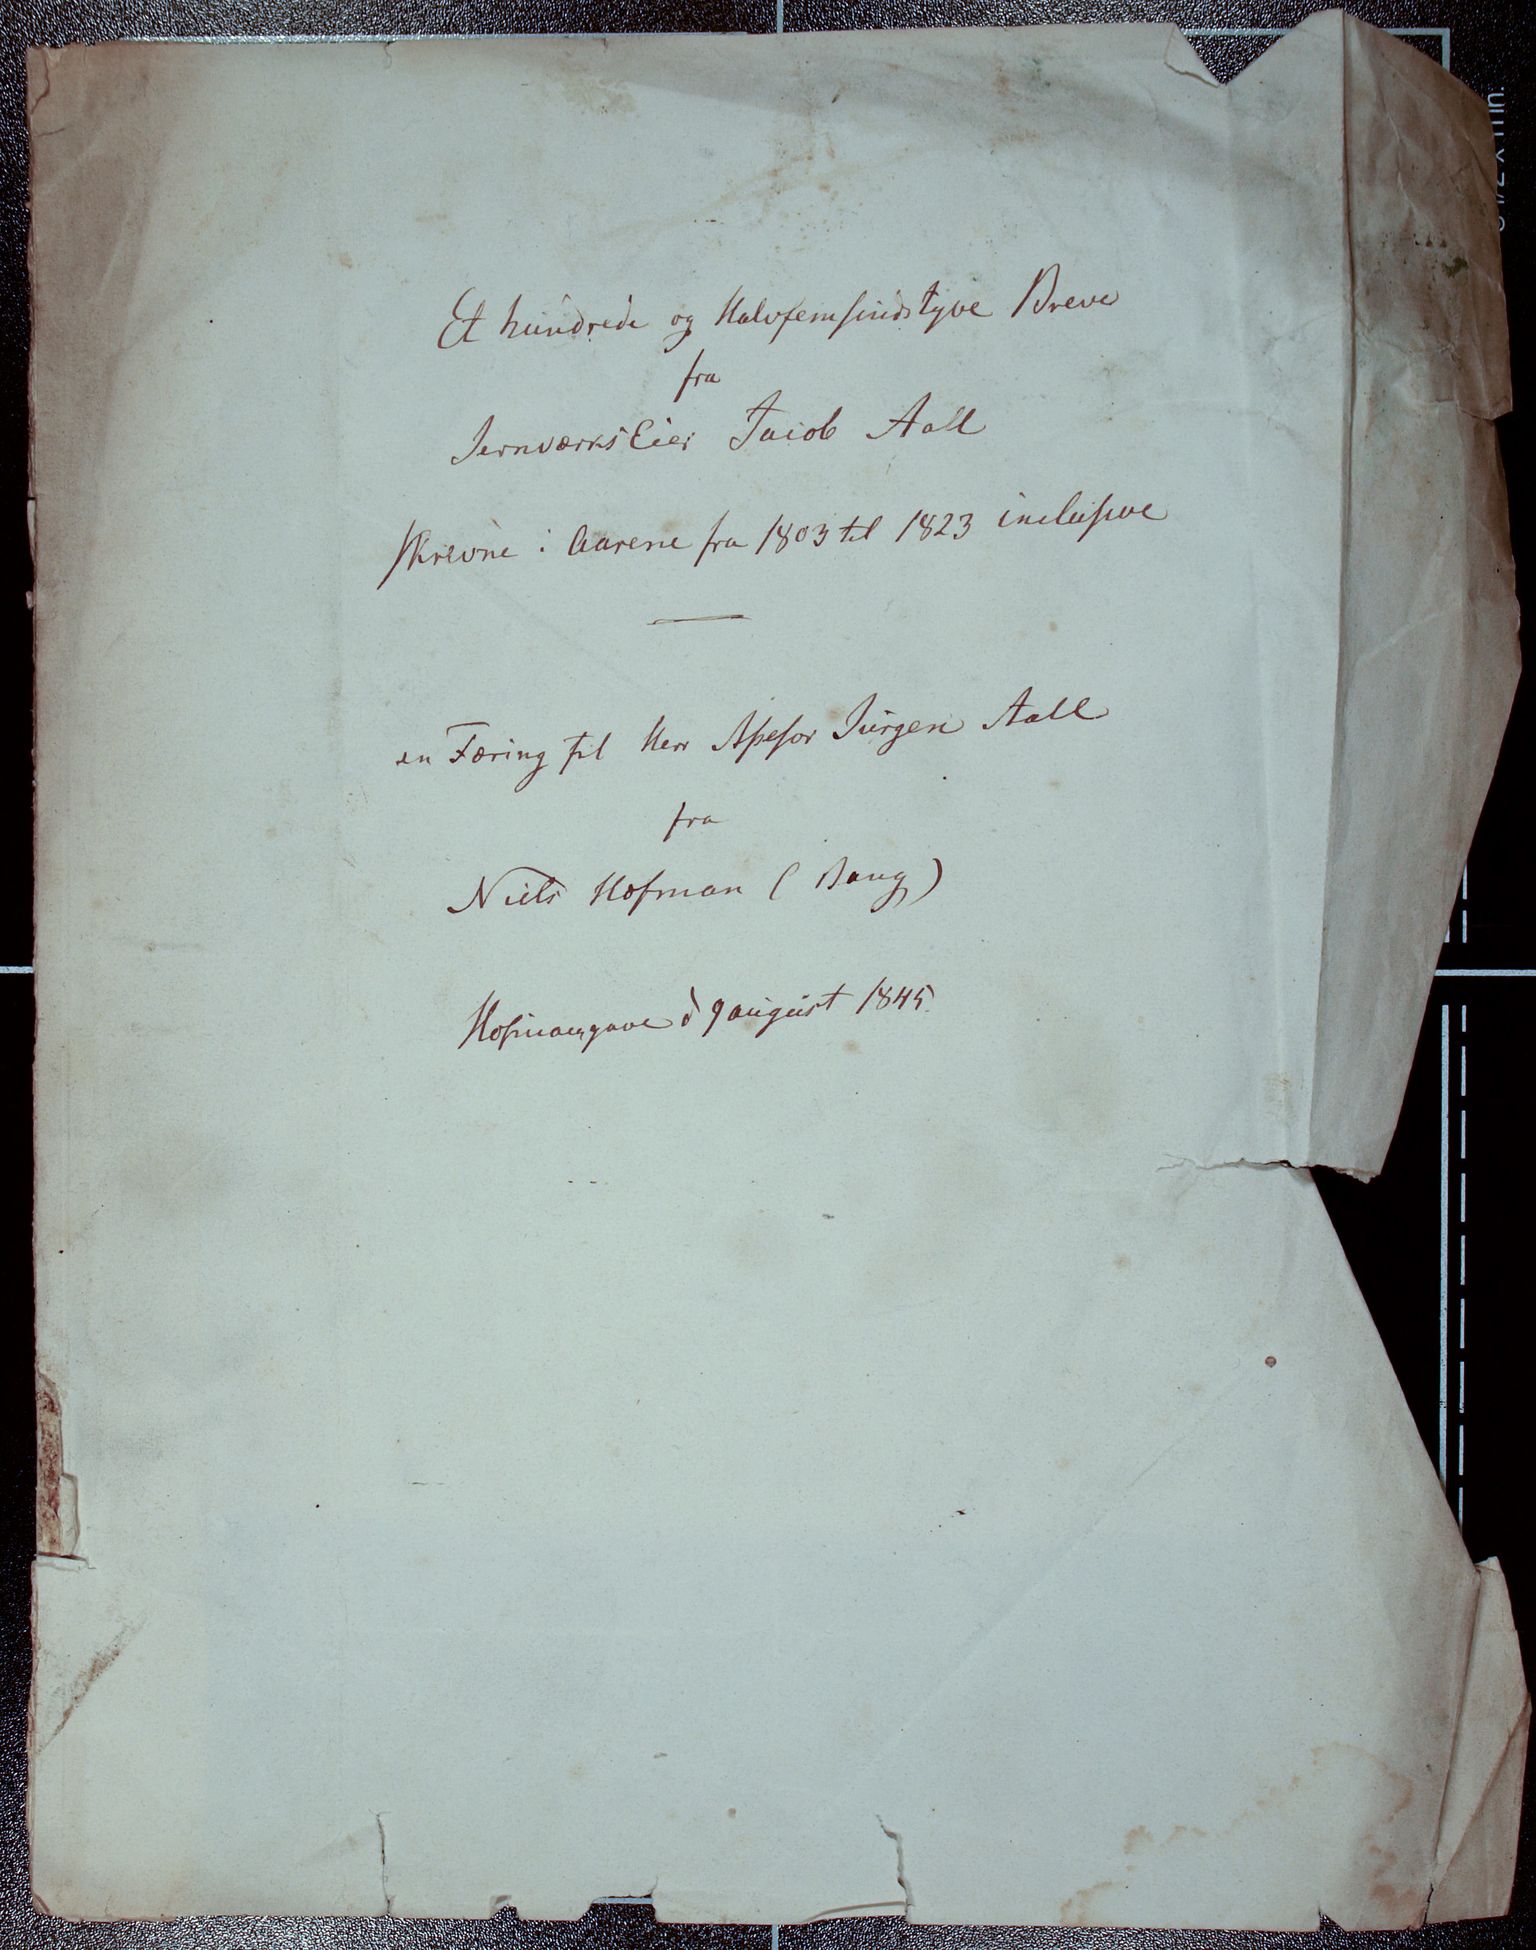 Et hundrede og Halvfemsindstyve Breve
fra
Jernværks Eier Jacob Aall
skrevne i Aarene fra 1803 til 1823 inclusive
en Foræring til Herr Assessor Jørgen Aall
fra
Niels Hofman (Bang)
Hofmansgave d 9 august 1845.